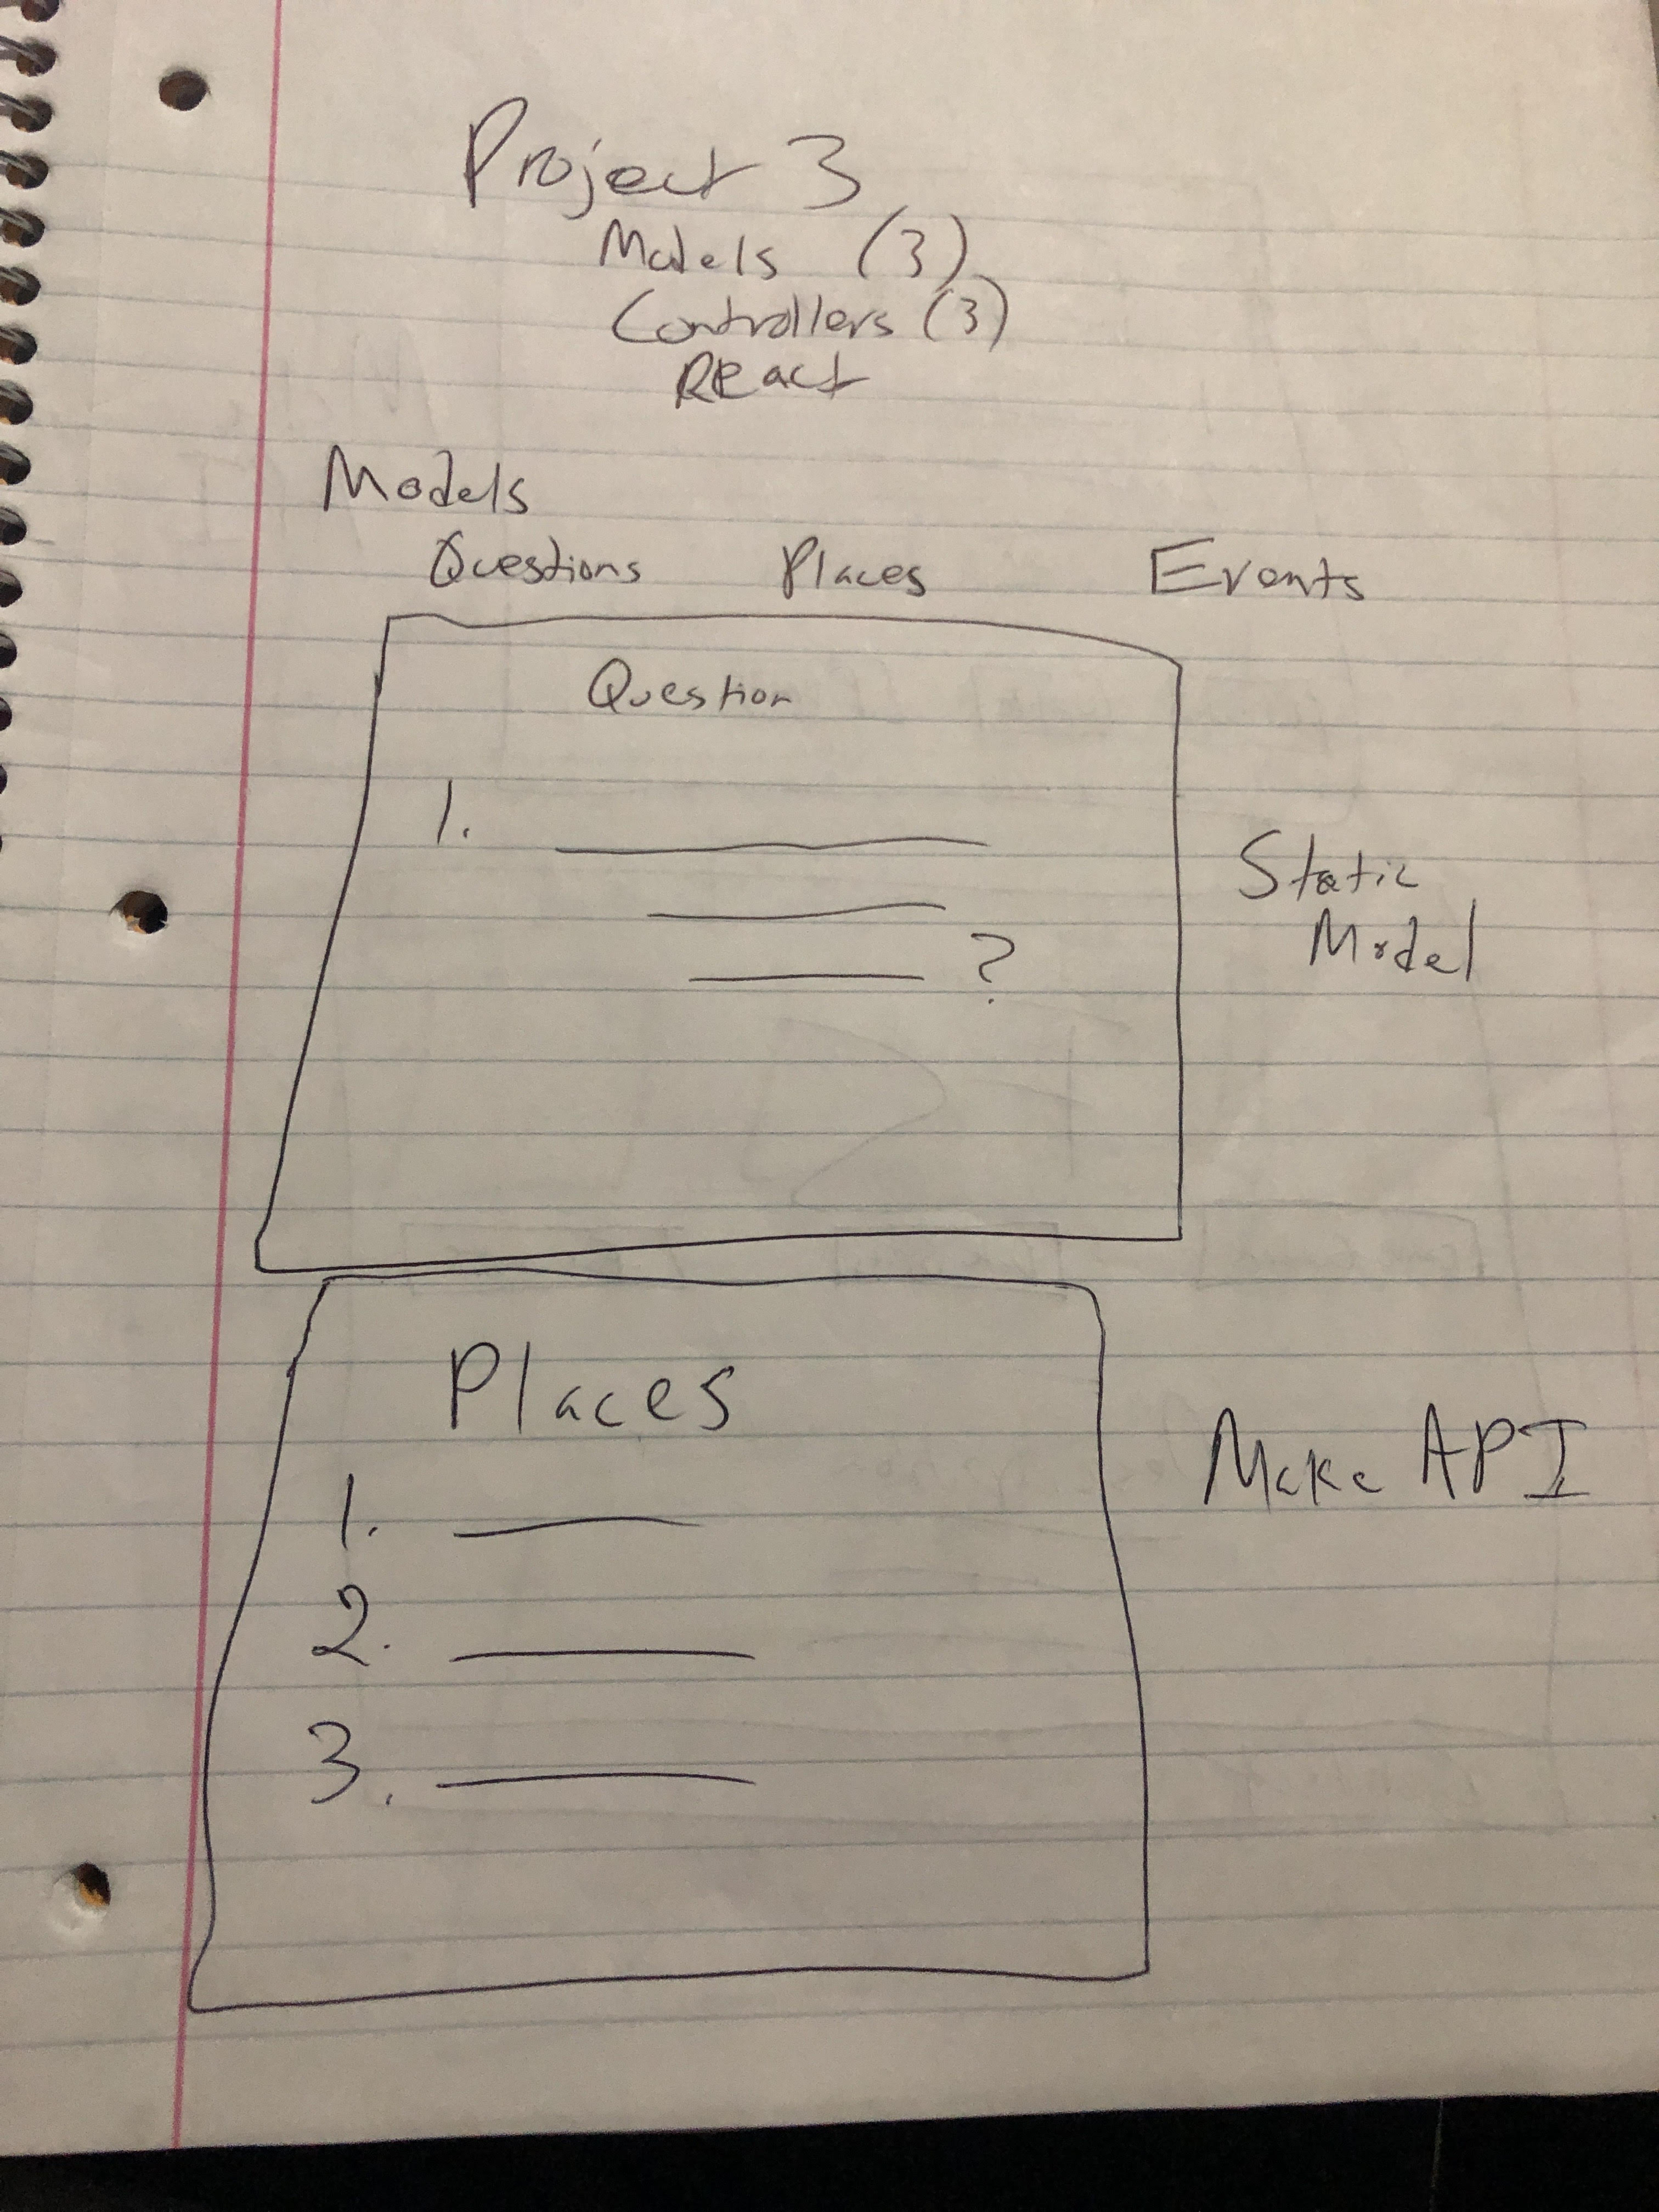 Project 3
Models (3)
Controllers (3)
React
Models
Questions Places Events
Question
1.
?
Static
Model
Places
1.
2.
3.
Make API